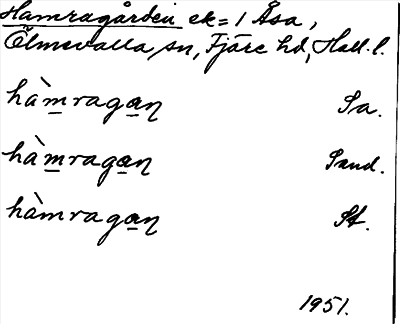 Hamragården ek= 1 Åsa,
Ölmevalla sn, Fjäre hd, Hall. l.
hàmragan̥ Sa.
hàmragan̥ Sand.
hàmragan̥ St.
1951.